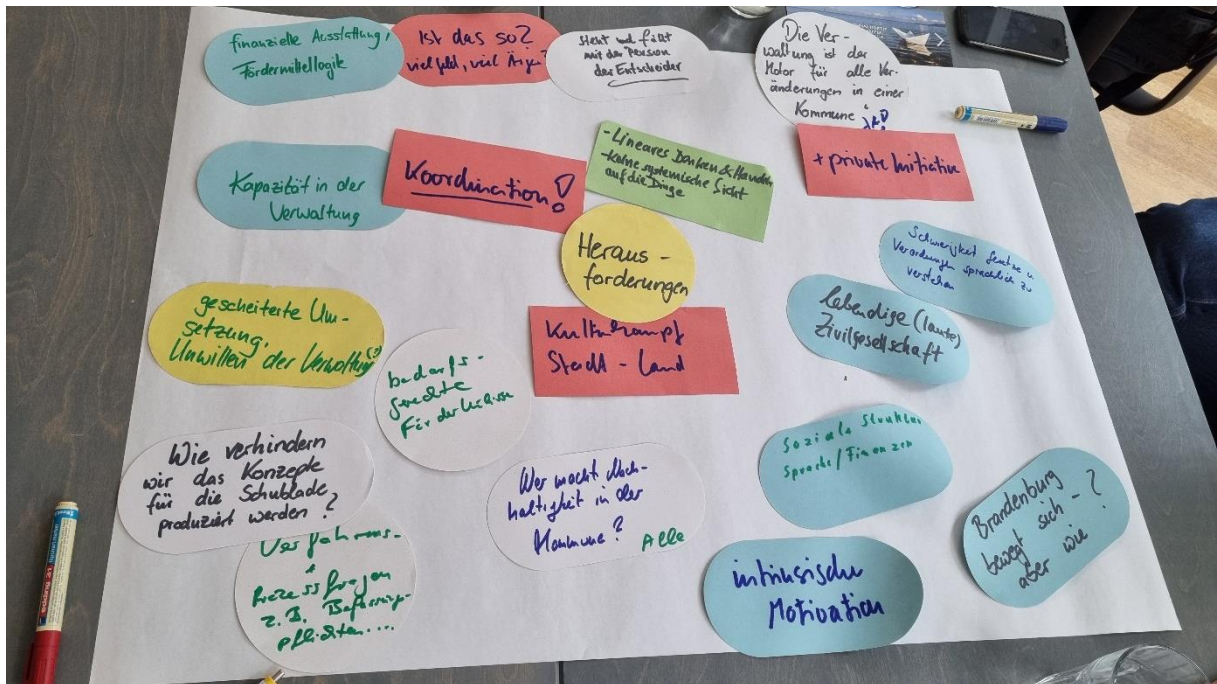 finanzielle Ausstattung,
Fördermittellogik
Ist das so?
viel Geld, viel Ärger?
steht und fällt
mit der
der Entscheider
Die Ver-
waltung ist der
Motor für alle Ver-
änderungen in einer
Kommune
JA!
Kapazität in der
Verwaltung
Koordination!
- Lineares Denken & Handeln
- keine systemische Sicht
auf die Dinge
+ private Initiative
Heraus-
forderungen
Schwierigkeit Gesetze u
Verordnungen sprachlich zu
verstehen
gescheiterte Um-
setzung,
Unwillen der Verwaltung (?)
bedarfs-
gerechte
Förderkulisse
Kulturkampf
Stadt - Land
lebendige (laute)
Zivilgesellschaft
Wie verhindern
wir das Konzepte
für die Schublade
produziert werden?
Wer macht Nach-
haltigkeit in der
Kommune?
Alle
Soziale Struktur
Sprache/Finanzen
Brandenburg
bewegt sich - ?
aber wie
Verfahrens-
+
Prozessfragen
z.B. Befassungs-
pflichten....
intrinsische
Motivation
edding 31